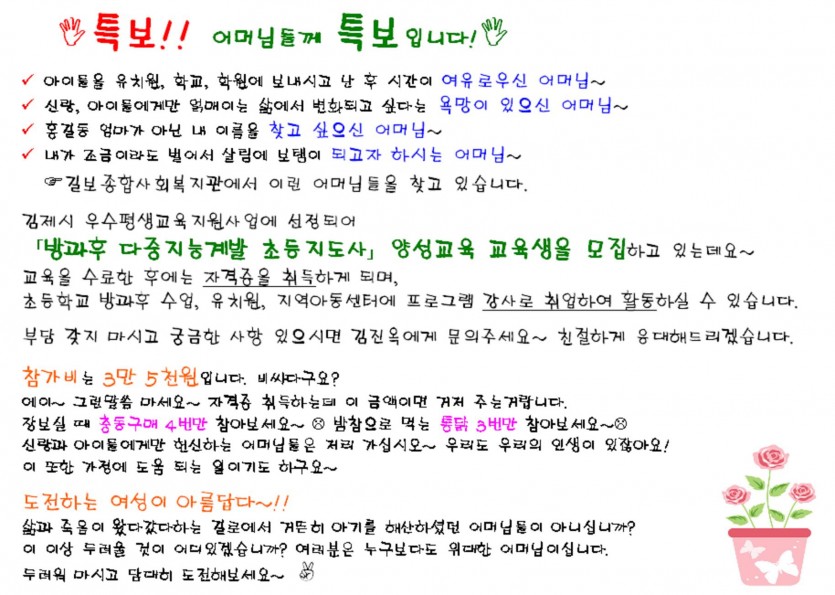 특보!! 어머님들께 특보입니다!
✓ 아이들을 유치원, 학교, 학원에 보내시고 난 후 시간이 여유로우신 어머님~
✓ 신랑, 아이들에게만 얽매이는 삶에서 변화되고 싶다는 욕망이 있으신 어머님~
✓ 홍길동 엄마가 아닌 내 이름을 찾고 싶으신 어머님~
✓ 내가 조금이라도 벌어서 살림에 보탬이 되고자 하시는 어머님~
☞길보종합사회복지관에서 이런 어머님들을 찾고 있습니다.
김제시 우수평생교육지원사업에 선정되어
「방과후 다중지능계발 초등지도사」 양성교육 교육생을 모집하고 있는데요~
교육을 수료한 후에는 자격증을 취득하게 되며,
초등학교 방과후 수업, 유치원, 지역아동센터에 프로그램 강사로 취업하여 활동하실 수 있습니다.
부담 갖지 마시고 궁금한 사항 있으시면 김진옥에게 문의주세요~ 친절하게 응대해드리겠습니다.
참가비는 3만 5천원입니다. 비싸다구요?
에이~ 그런말씀 마세요~ 자격증 취득하는데 이 금액이면 거저 주는거랍니다.
장보실 때 충동구매 4번만 참아보세요~ ☹ 밤참으로 먹는 통닭 3번만 참아보세요~☹
신랑과 아이들에게만 헌신하는 어머님들은 저리 가십시오~ 우리도 우리의 인생이 있잖아요!
이 또한 가정에 도움 되는 일이기도 하구요~
도전하는 여성이 아름답다~!!
삶과 죽음이 왔다갔다하는 길로에서 거든히 아기를 해산하셨던 어머님들이 아니십니까?
이 이상 두려울 것이 어디있겠습니까? 여러분은 누구보다도 위대한 어머님이십니다.
두려워 마시고 담대히 도전해보세요~ ✌